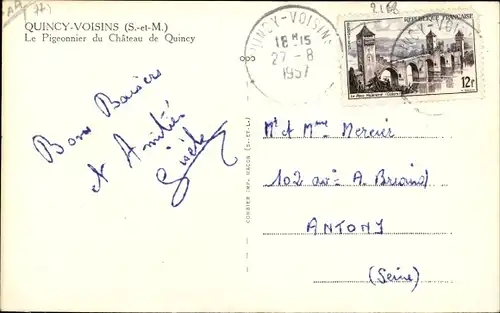 QUINCY-VOISINS (S.-et-M.)
Le Pigeonnier du Château de Quincy
Bons Baisers
et Amitiés
Gisèle
QUINCY-VOISINS
18H15
27-8
1957
2.168
RÉPUBLIQUE FRANÇAISE
12F
Le Pont Valentré - Cahors
COMBIER IMP. MACON (S.-ET-L.)
Mr et Mme Mercier
102 ave A. Briand
ANTONY
(Seine)